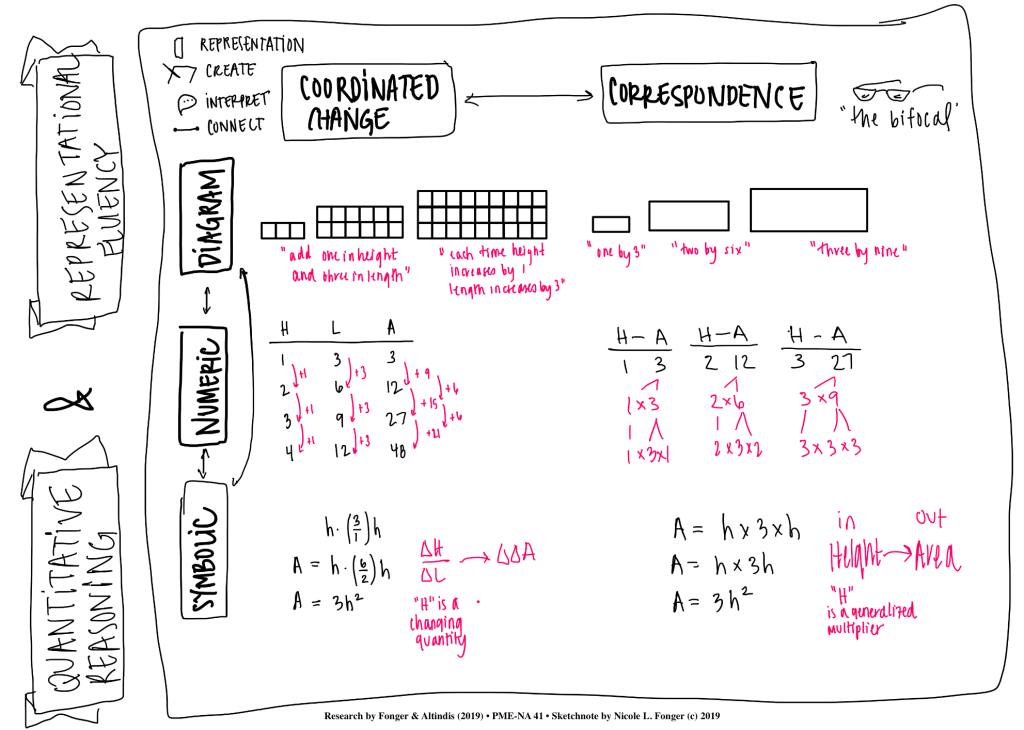 REPRESENTATIONAL
FLUENCY
&
QUANTITATIVE
REASONING
REPRESENTATION
CREATE
INTERPRET
CONNECT
COORDINATED
CHANGE
CORRESPONDENCE
"the bifocal"
DIAGRAM
"add one in height
and three in length"
"each time height
increases by 1
length increases by 3"
"one by 3"
"two by six"
"three by nine"
NUMERIC
H L A
1 3 3
+1 +3 +9
2 6 12
+6
+1 +3 +15
3 9 27
+6
+1 +3 +21
4 12 48
H - A
1 3
1 x 3
1 x 3 x 1
H - A
2 12
2 x 6
2 x 3 x 2
H - A
3 27
3 x 9
3 x 3 x 3
SYMBOLIC
h · (3/1) h
A = h · (6/2) h
A = 3h²
ΔH/ΔL → ΔΔA
"H" is a
changing
quantity
A = h x 3 x h
A = h x 3h
A = 3h²
in out
Height → Area
"H"
is a generalized
multiplier
Research by Fonger & Altindis (2019) • PME-NA 41 • Sketchnote by Nicole L. Fonger (c) 2019